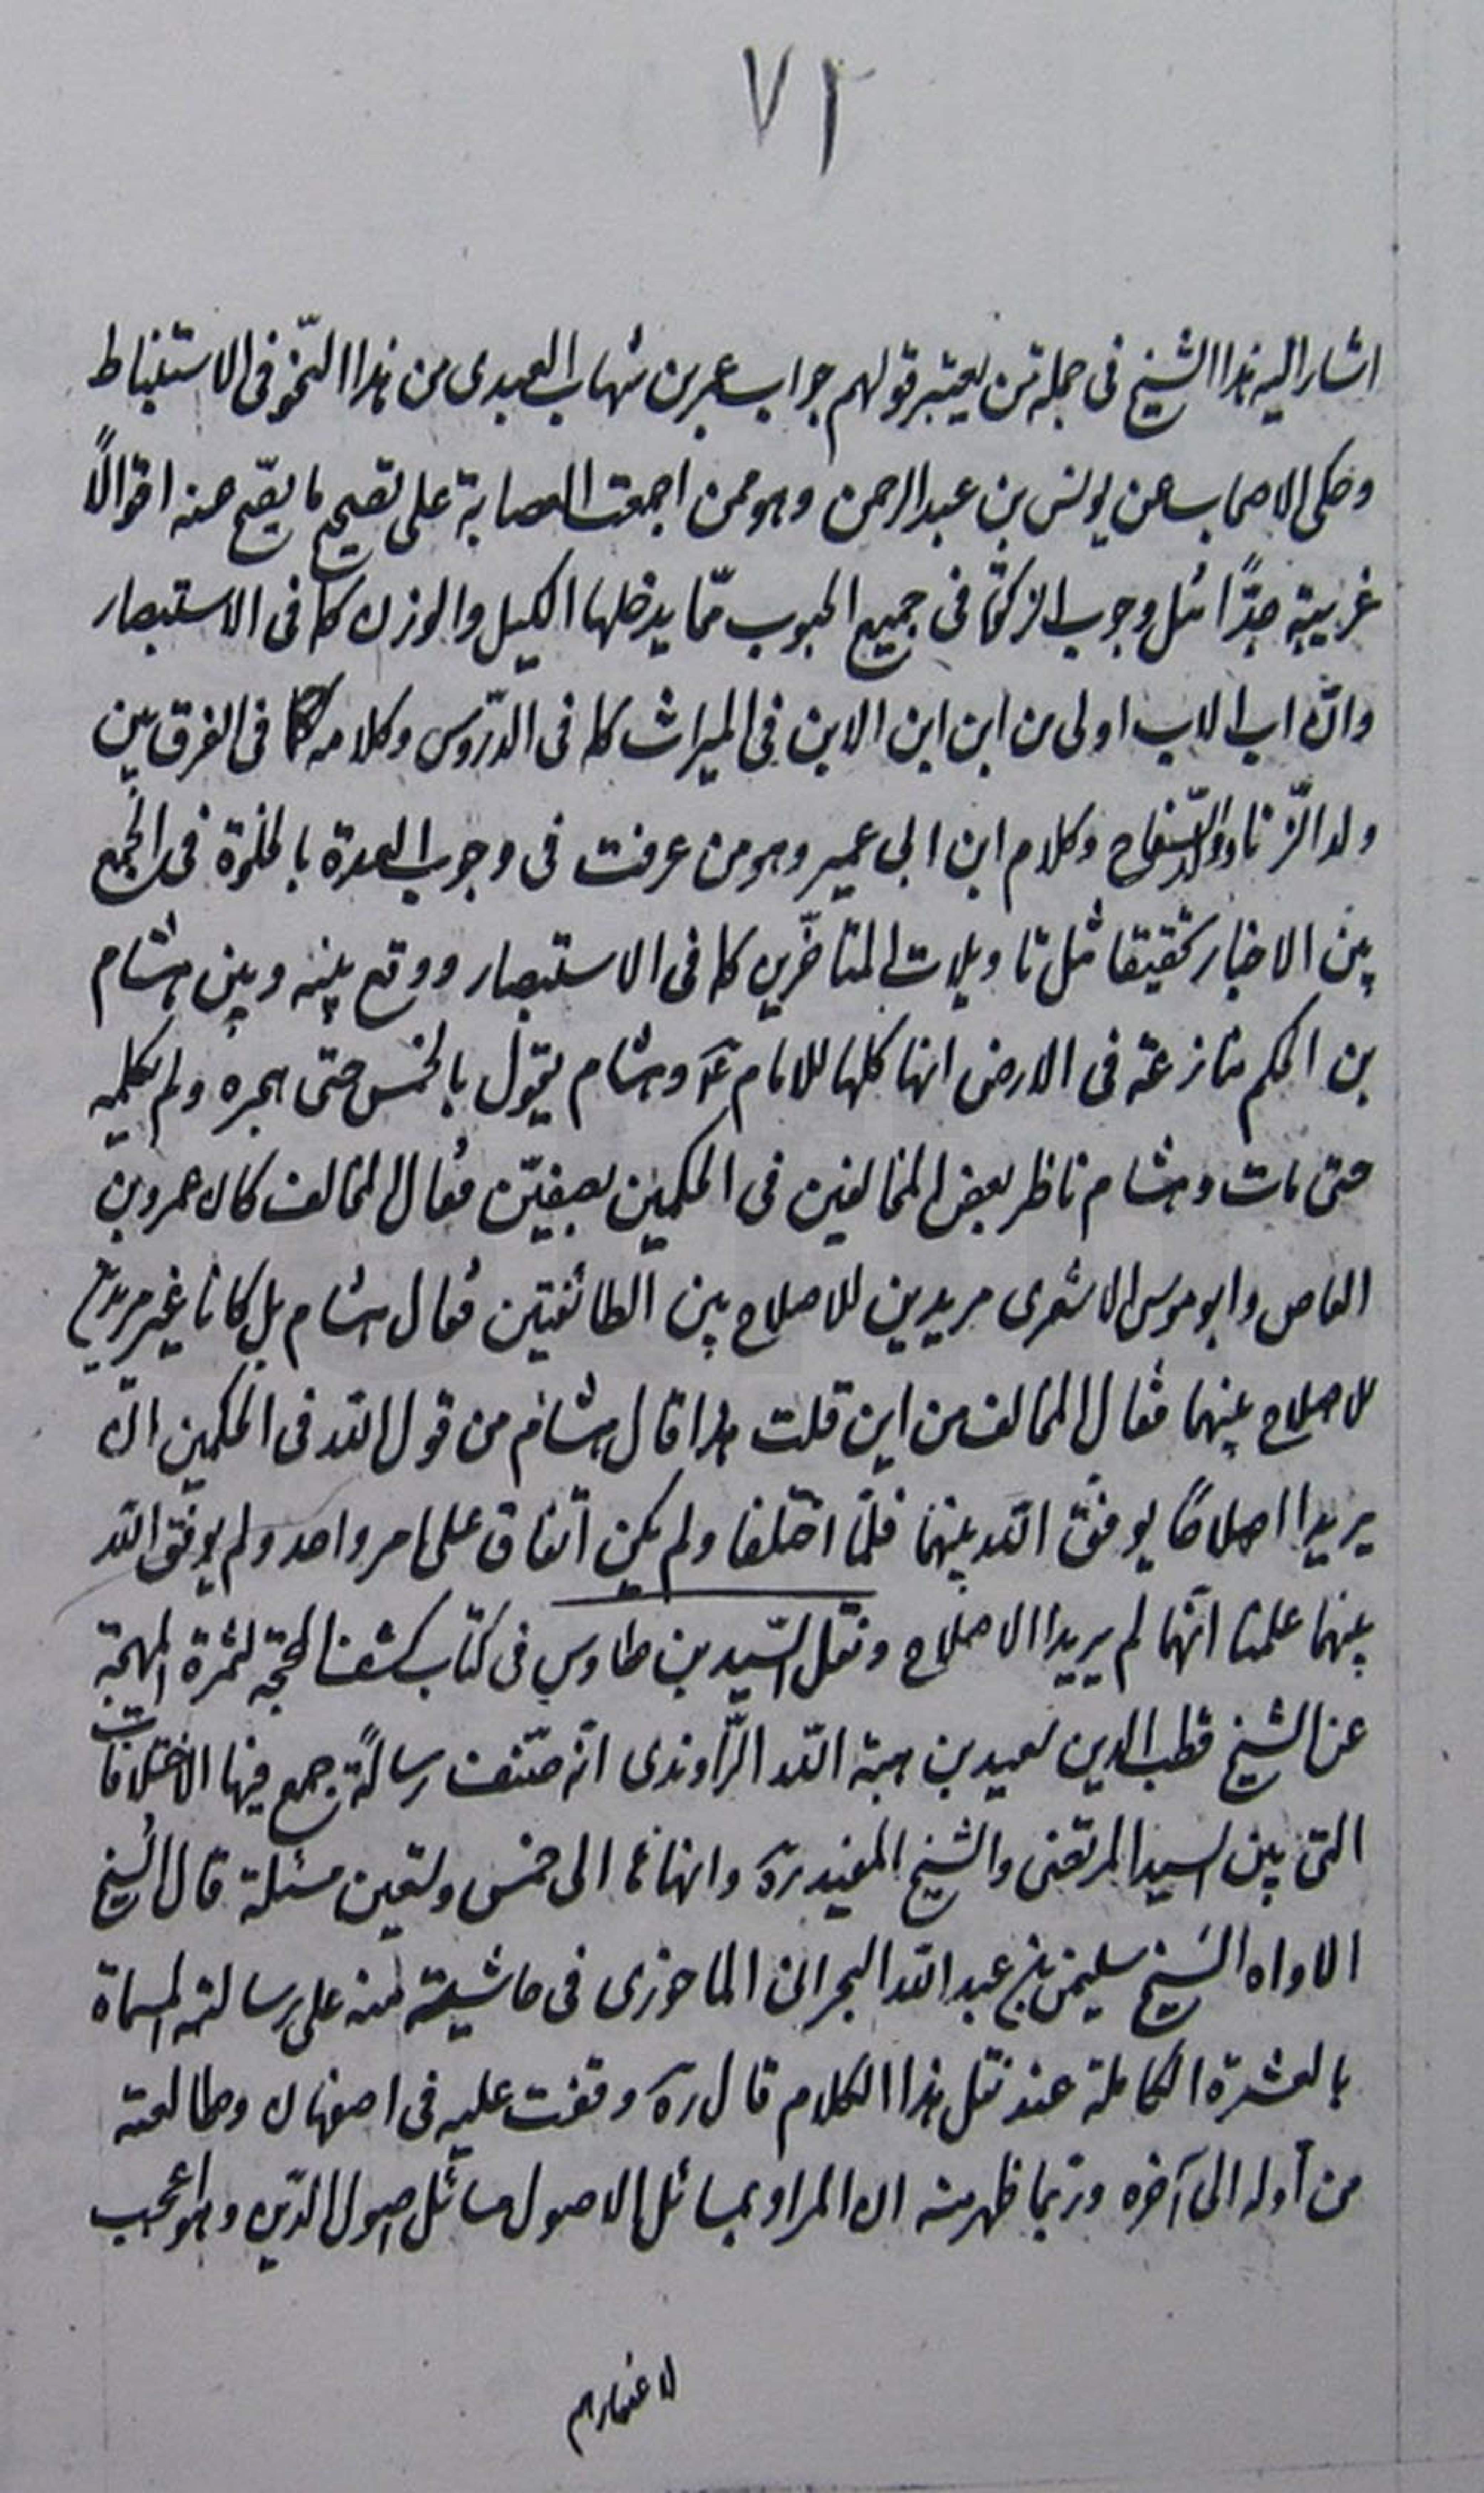 ٧٢
اشار اليه هذا الشيخ فى جملة من يعتبر قولهم جواب عمر بن شهاب العبدى من هذا النّحو فى الاستنباط
وحكى الاصحاب عن يونس بن عبد الرحمن وهو ممن اجمعت العصابة على تصحيح ما يصّح عنه اقوالاً
غريبة جدًّا مثل وجوب الزكوة فى جميع الحبوب ممّا يدخلها الكيل والوزن كما فى الاستبصار
وانّ اب الاب اولى من ابن ابن الابن فى الميراث كما فى الدّروس وكلامه فى الفرق بين
ولد الزّنا وولد السّفاح وكلام ابن ابى عمير وهو من عرفت فى وجوب العدة بالخلوة فى الجمع
بين الاخبار تحقيقا مثل تاويلات المتاخّرين كما فى الاستبصار ووقع بينه وبين هشام
بن الحكم منازعة فى الارض انها كلها للامام عَ وهشام يقول بالخمس حتى هجره ولم يكلمه
حتى مات وهشام ناظر بعض المخالفين فى الحكمين بصفيّن فقال المخالف كان عمرو بن
العاص وابو موسى الاشعرى مريدين للاصلاح بين الطائفتين فقال هشام بل كانا غير مريدين
للاصلاح بينهما فقال المخالف من اين قلت هذا قال هشام من قول الله فى الحكمين ان
يريدا اصلاحًا يوفق الله بينهما فلمّا اختلفا ولم يكن اتفاق على امر واحد ولم يوفق الله
بينهما علمنا انّهما لم يريدا الاصلاح ونقل السّيد بن طاوس فى كتاب كشف المحجّة لثمرة المهجة
عن الشيخ قطب الدين سعيد بن هبة الله الرّاوندى انّه صنّف رسالةً جمع فيها الاختلافات
التى بين السيد المرتضى والشيخ المفيد رهَ وانهاها الى خمس وتسعين مسئلة قال الشيخ
الاواه الشيخ سليمن بن عبد الله البحرانى الماحوزى فى حاشية منه على رسالته المسماة
بالعشرة الكاملة عند نقل هذا الكلام قال رهَ وقفت عليه فى اصفهان وطالعته
من اوله الى آخره وربّما ظهر منه ان المراد بمسائل الاصول مسائل اصول الدّين وهو عجيب